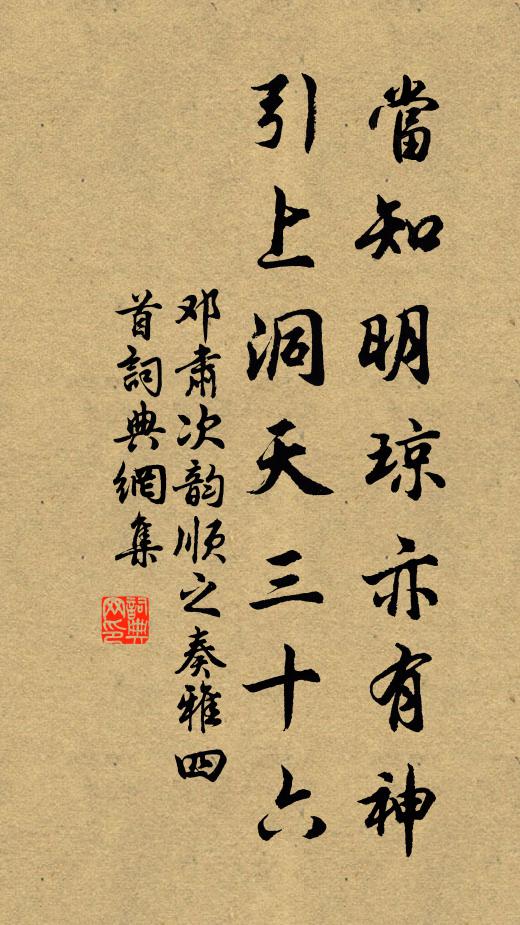 當知明琼亦有神
引上洞天三十六
邓肅次韵順之奏雅四
首詞典網集
詞典
网印